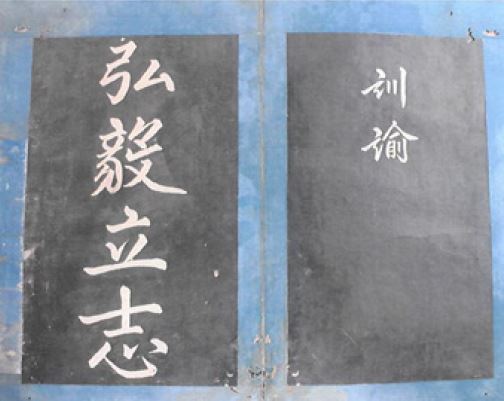 训谕
弘毅立志